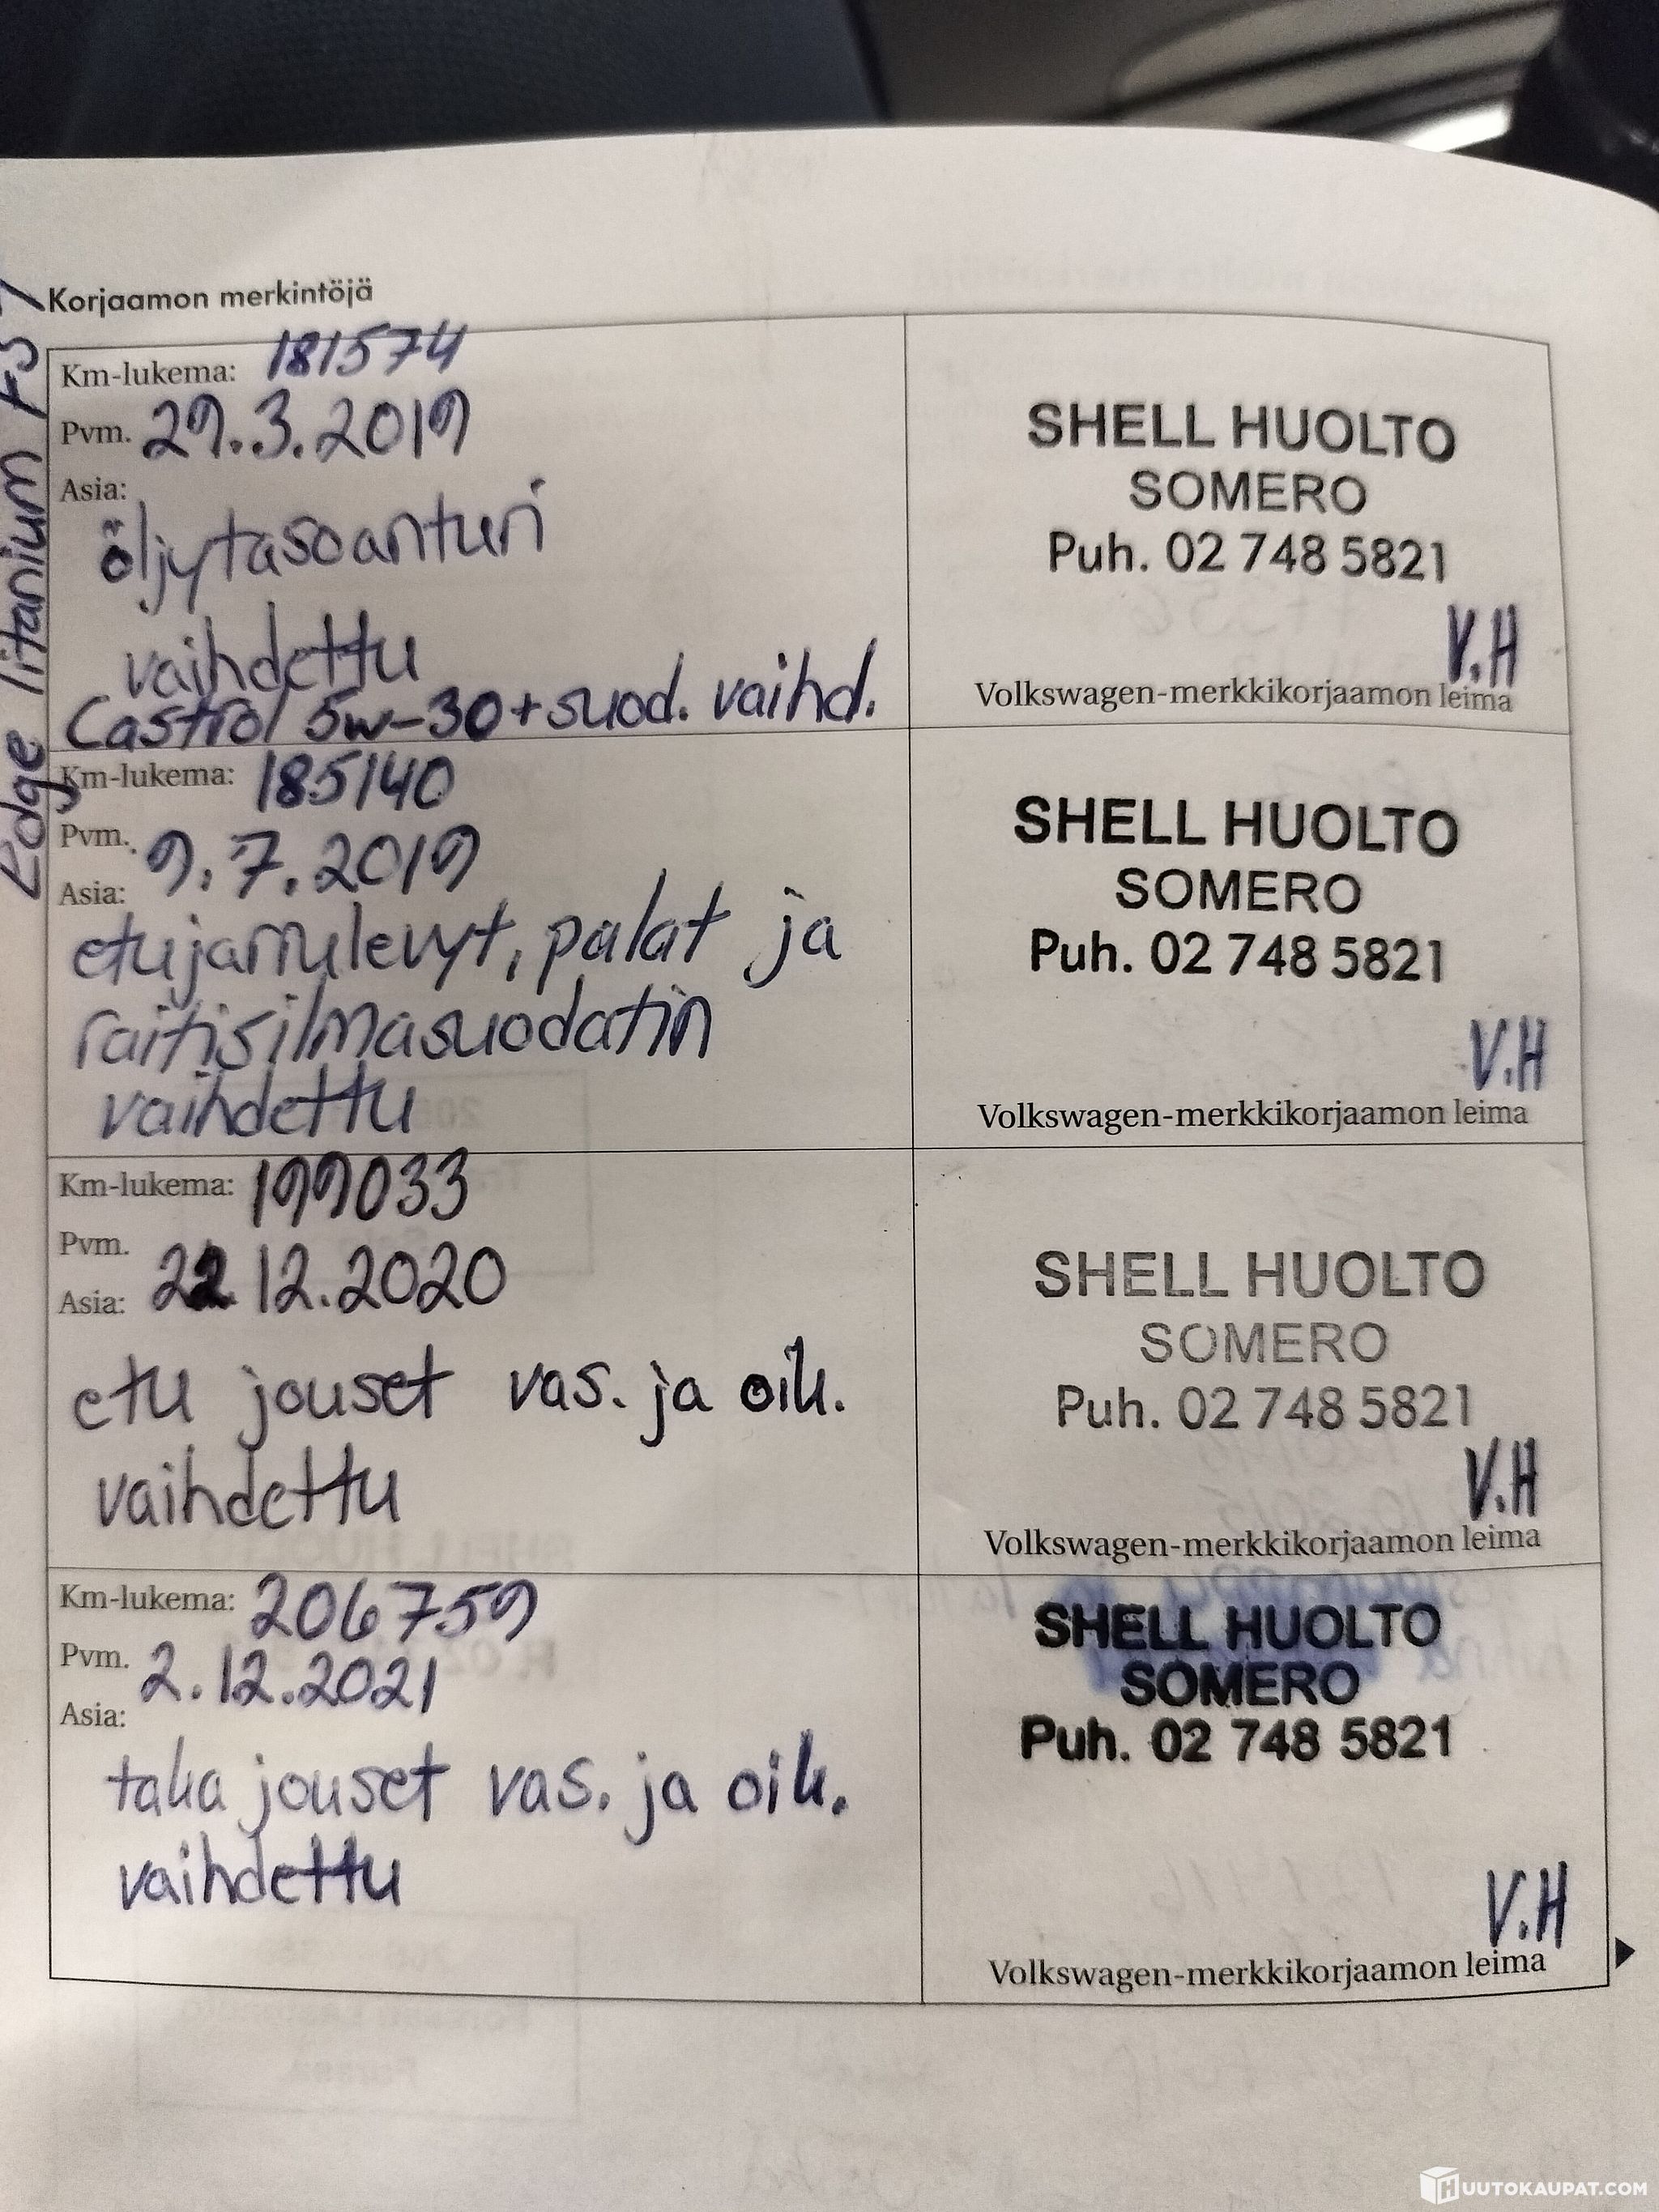 Korjaamon merkintöjä
Edge Titanium FST
Km-lukema: 181574
Pvm. 29.3.2019
Asia:
öljytasoanturi
vaihdettu
Castrol 5w-30+suod. vaihd.
SHELL HUOLTO
SOMERO
Puh. 02 748 5821
V.H
Volkswagen-merkkikorjaamon leima
Km-lukema: 185140
Pvm. 9.7.2019
Asia:
etujarrulevyt, palat ja
raitisilmasuodatin
vaihdettu
SHELL HUOLTO
SOMERO
Puh. 02 748 5821
V.H
Volkswagen-merkkikorjaamon leima
Km-lukema: 199033
Pvm.
Asia: 22 12.2020
etu jouset vas. ja oik.
vaihdettu
SHELL HUOLTO
SOMERO
Puh. 02 748 5821
V.H
Volkswagen-merkkikorjaamon leima
Km-lukema: 206759
Pvm. 2.12.2021
Asia:
taka jouset vas. ja oik.
vaihdettu
SHELL HUOLTO
SOMERO
Puh. 02 748 5821
V.H
Volkswagen-merkkikorjaamon leima
HUUTOKAUPAT.COM